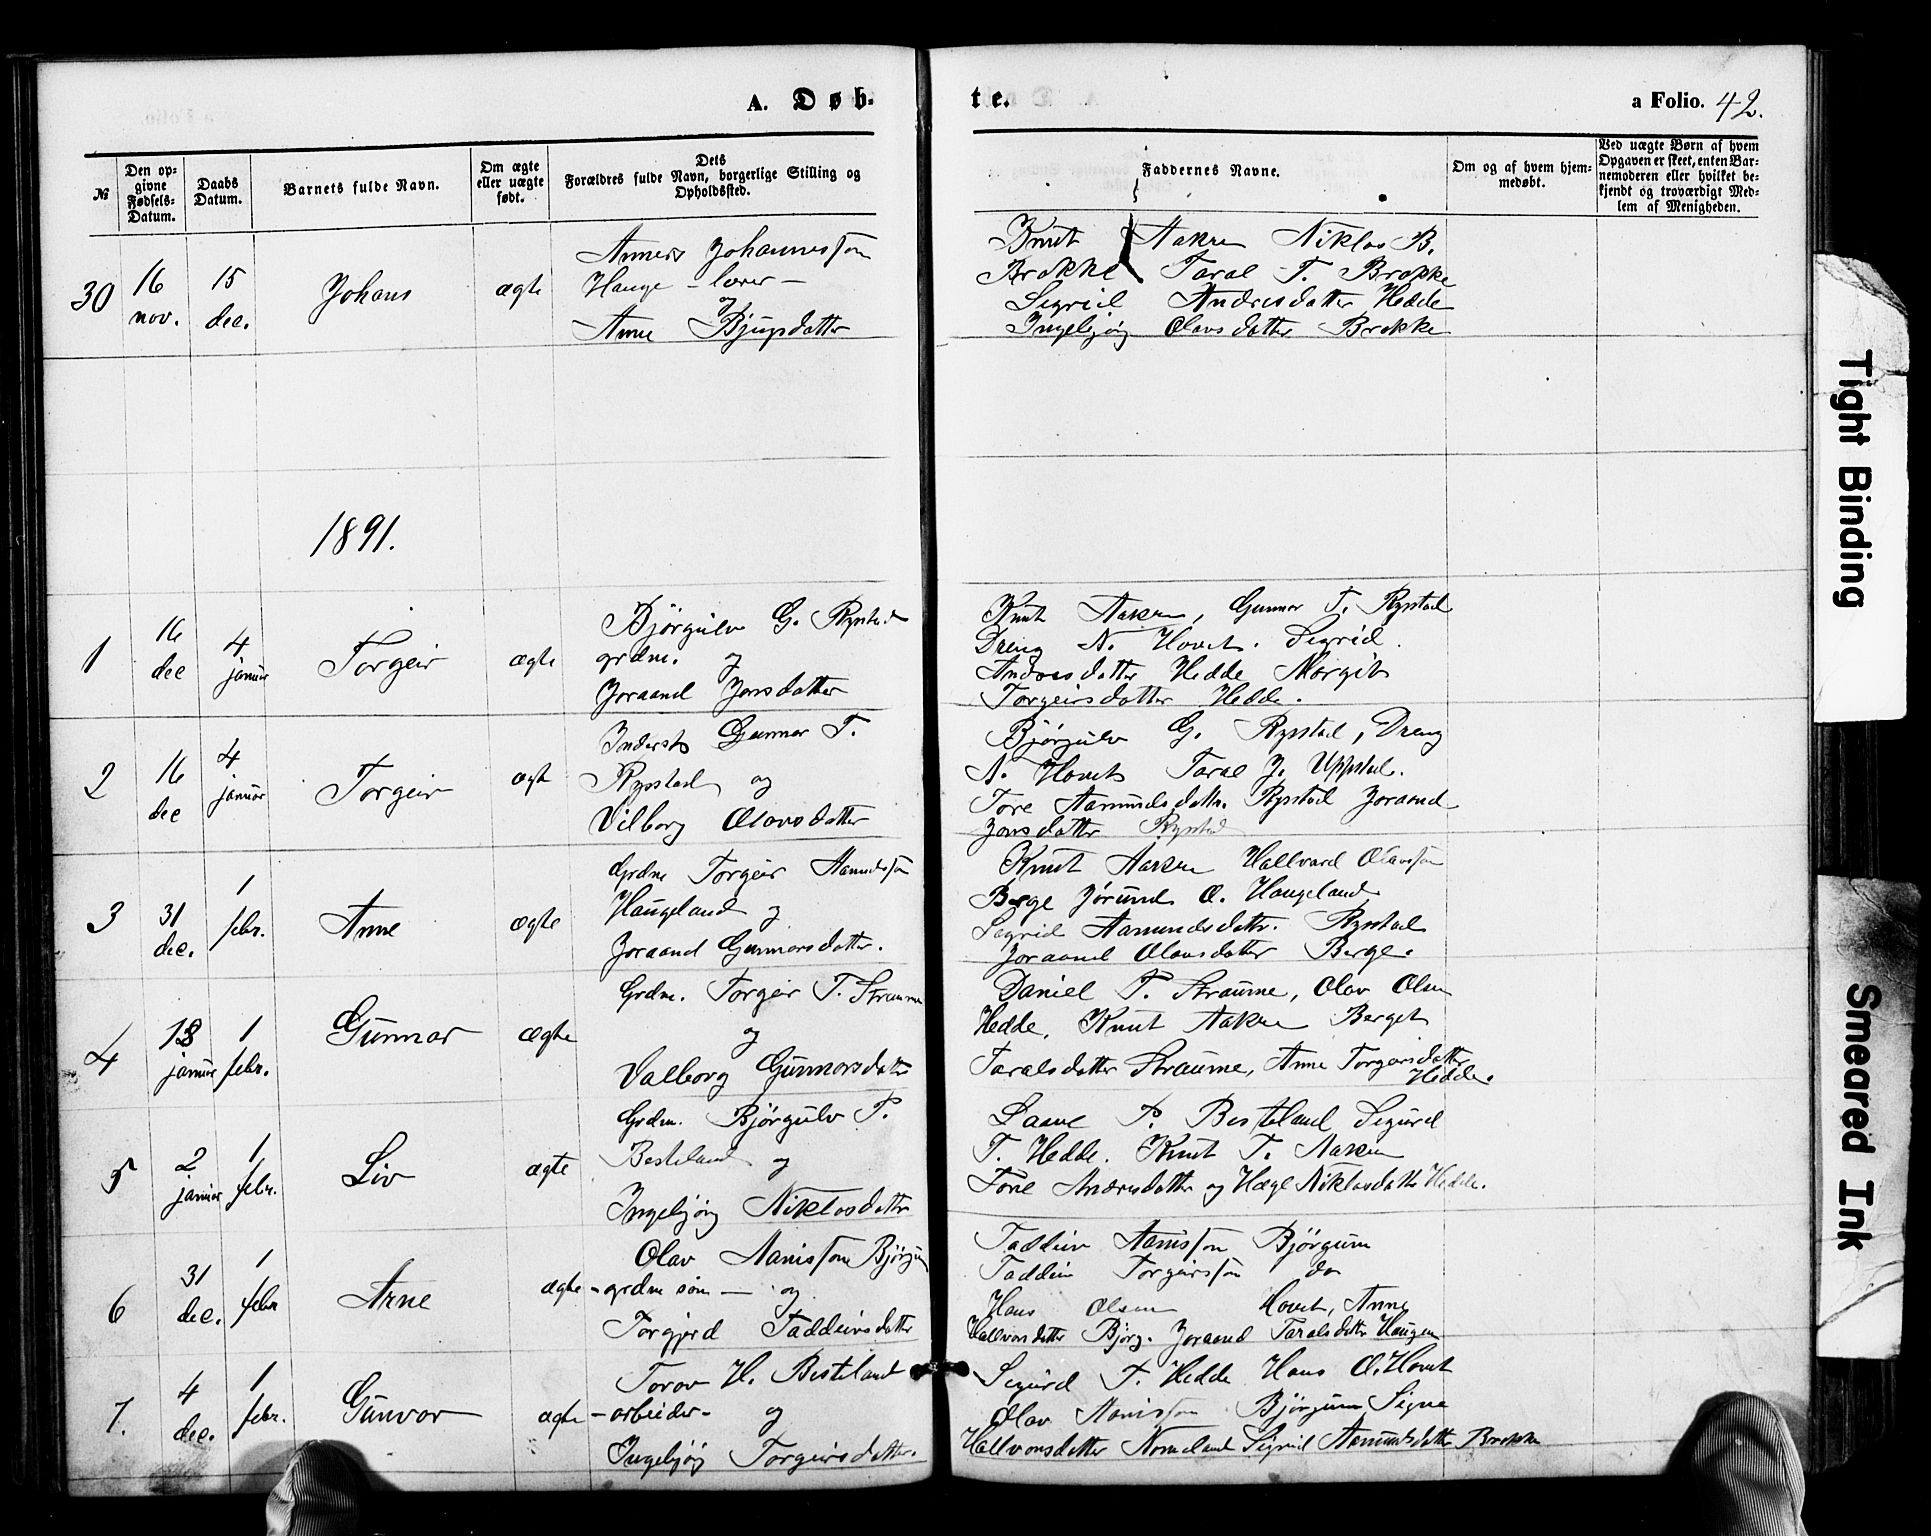 A. Døb-
te.
a Folio. 42.
№
Den op-
givne
Fødsels-
Datum.
Daabs
Datum.
Barnets fulde Navn.
Om ægte
eller uægte
født.
Dets
Forældres fulde Navn, borgerlige Stilling og
Opholdssted.
Faddernes Navne.
Om og af hvem hjem-
medøbt.
Ved uægte Børn af hvem
Opgaven er skeet, enten Bar-
nemoderen eller hvilket be-
kjendt og troværdigt Med-
lem af Menigheden.
30
16
nov.
15
dec.
Johans
ægte
Anners Johannesson
Hauge - lærer -
og
Anne Bjugsdatter
Knut Aakre Niklos B.
Brokke Taral T. Brokke
Sigrid Andresdatter Hedde
Ingebjørg Olavsdatter Brokke
1891.
1
16
dec
4
januar
Torgeir
ægte
Bjørgulv G. Rystad
grdm. og
Joraand Jonsdatter
Knut Aakre, Gunnar T. Rystad
Dreng N. Hovet. Sigrid
Andresdatter Hedde Margit
Torgeirsdatter Hedde.
2
16
dec
4
januar
Torgeir
ægt
Inderst Gunnar T.
Rystad og
Vilborg Olavsdatter
Bjørgulv G. Rystad, Dreng
N. Hovet Taral J. Uppstad.
Tore Aamundsdattr. Rystad Joraand
Jonsdatter Rystad
3
31
dec.
1
febr.
Anne
ægte
Grdm Torgeir Aamundson
Haugeland og
Joraand Gunnarsdatter.
Knut Aakre Hallvard Olavson
Berge Jørund O. Haugeland
Sigrid Aamundsdattr. Rystad
Joraand Olavsdatter Berge.
4
18
januar
1
febr.
Gunnar
ægte
Grdm. Torgeir T. Straume
og
Valborg Gunnarsdatter
Daniel T. Straume, Olav Olsen
Hedde, Knut Aakre Berget
Taralsdatter Straume, Anne Torgeirsdatter
Hedde.
5
2
januar
1
febr.
Liv
ægte
Grdm. Bjørgulv P.
Besteland og
Ingebjørg Niklosdattr
P. Besteland Sigurd
T. Hedde. Knut T. Aakre
Tone Andresdatter og Hæge Niklosdatter Hedde.
6
31
dec.
1
febr
Arne
ægte
Olav Aanisson Bjørgum
- grdm søn - og
Torgjerd Taddeivsdatter
Taddeiv Aanisson Bjørgum
Taddeiv Torgeirsson do
Hans Olsen Hovet, Anne
Hallvorsdatter Bjørg. Joraand Taralsdattr Haugen
7.
4
dec.
1
febr.
Gunvor
ægte
Torov H. Besteland
- arbeider - og
Ingebjørg Torgeirsdatter.
Sigurd T. Hedde Hans O. Hovet
Olav Aanisson Bjørgum Signe
Hallvorsdatter Nomeland Sigrid Aamundsdatter Brokke
Tight Binding
Smeared Ink